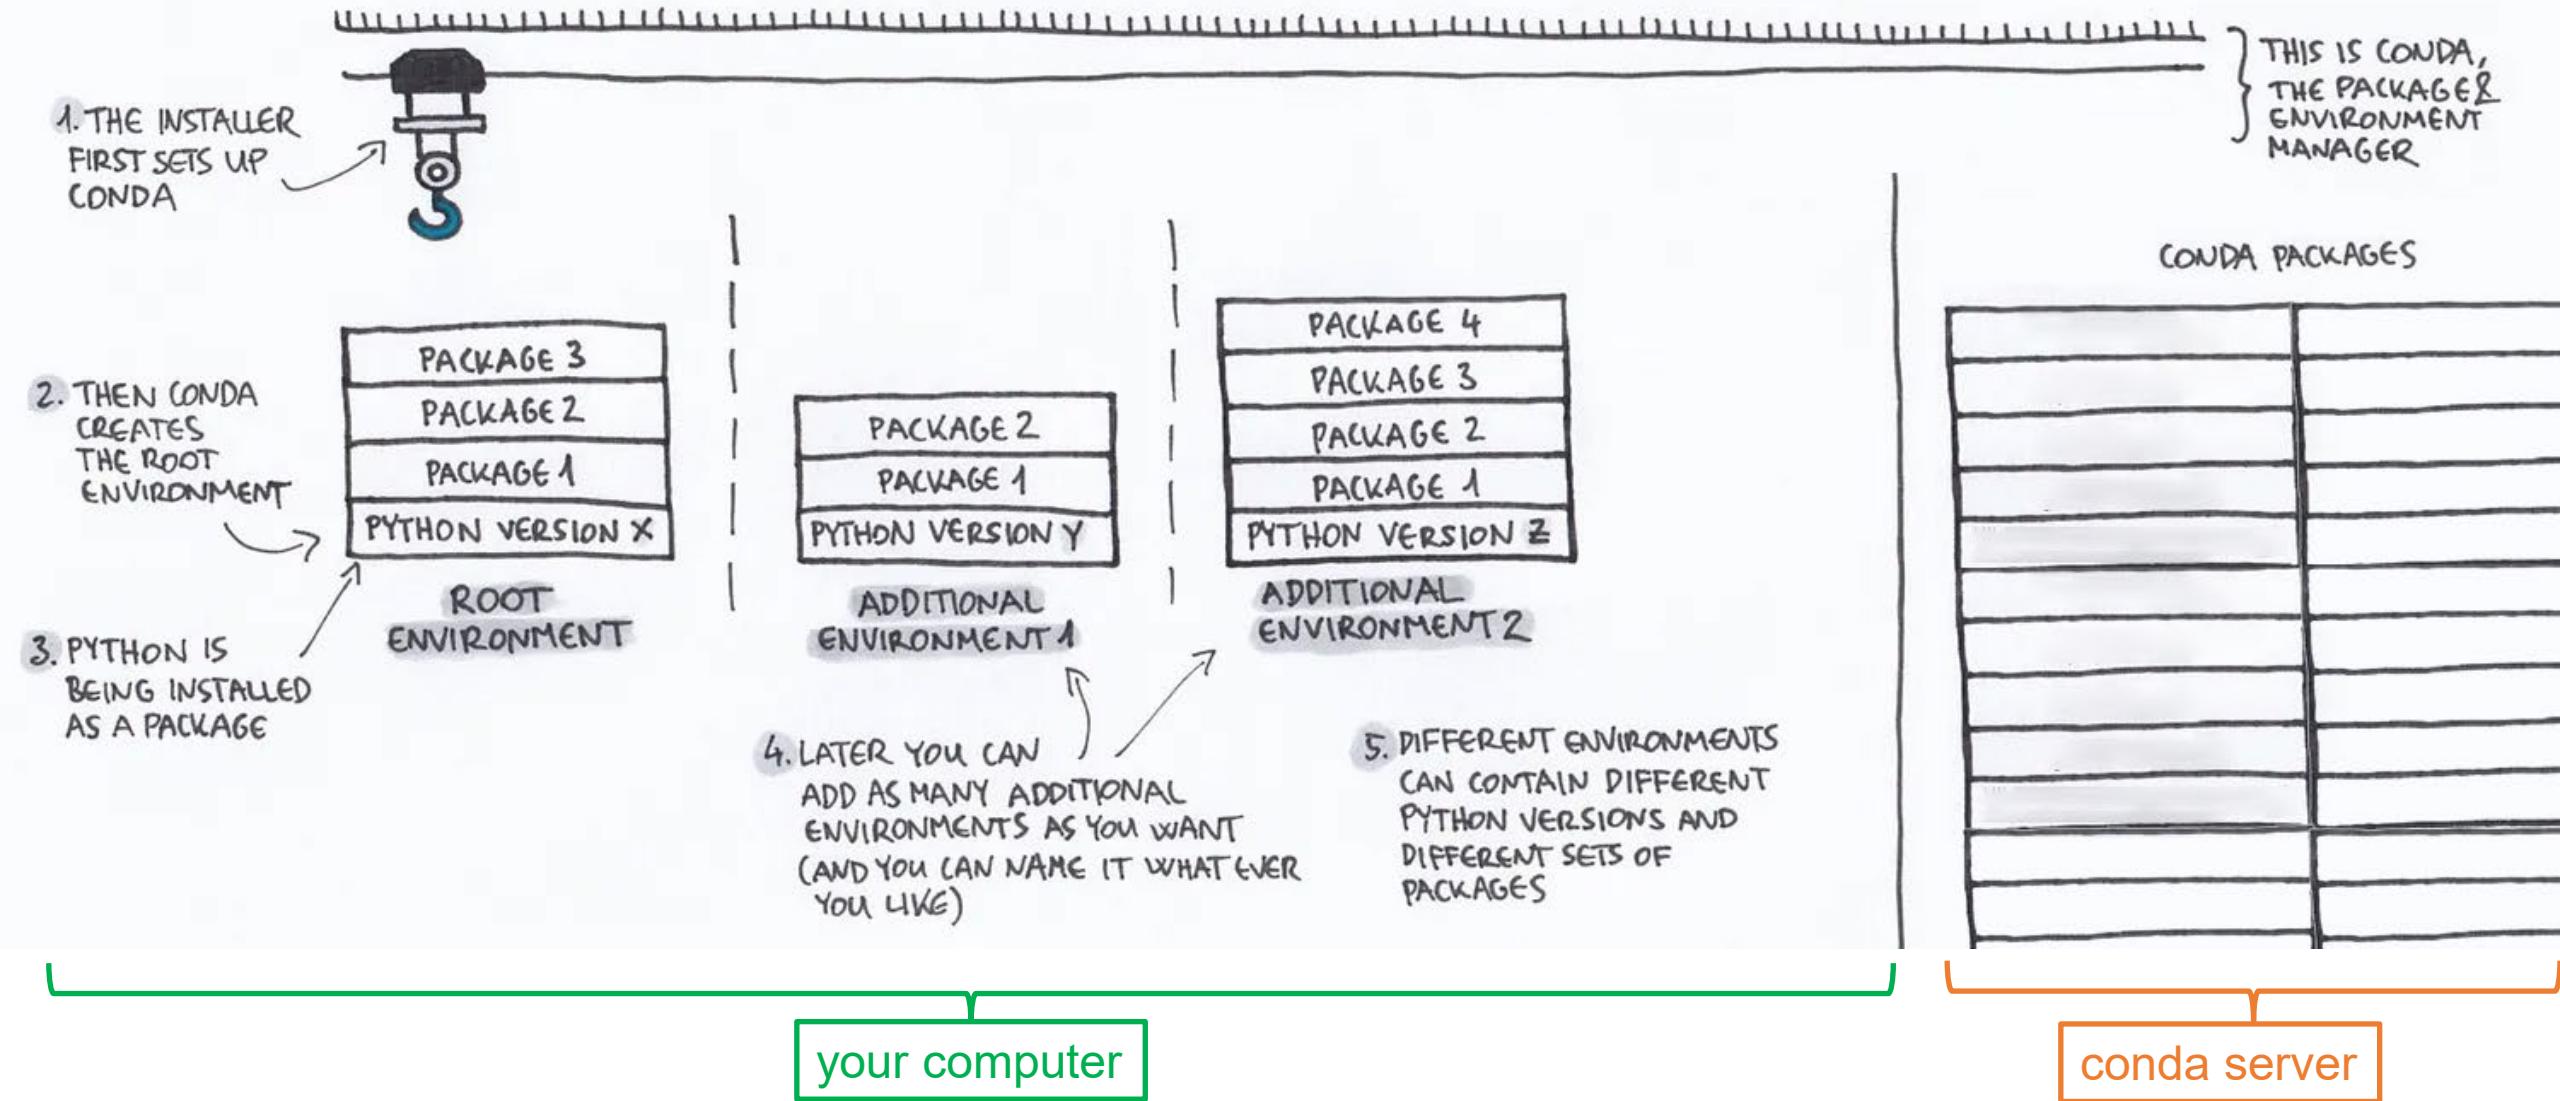 THIS IS CONDA,
THE PACKAGE &
ENVIRONMENT
MANAGER
1. THE INSTALLER
FIRST SETS UP
CONDA
CONDA PACKAGES
2. THEN CONDA
CREATES
THE ROOT
ENVIRONMENT
PACKAGE 3
PACKAGE 2
PACKAGE 1
PYTHON VERSION X
ROOT
ENVIRONMENT
PACKAGE 2
PACKAGE 1
PYTHON VERSION Y
ADDITIONAL
ENVIRONMENT 1
PACKAGE 4
PACKAGE 3
PACKAGE 2
PACKAGE 1
PYTHON VERSION Z
ADDITIONAL
ENVIRONMENT 2
3. PYTHON IS
BEING INSTALLED
AS A PACKAGE
4. LATER YOU CAN
ADD AS MANY ADDITIONAL
ENVIRONMENTS AS YOU WANT
(AND YOU CAN NAME IT WHAT EVER
YOU LIKE)
5. DIFFERENT ENVIRONMENTS
CAN CONTAIN DIFFERENT
PYTHON VERSIONS AND
DIFFERENT SETS OF
PACKAGES
your computer
conda server